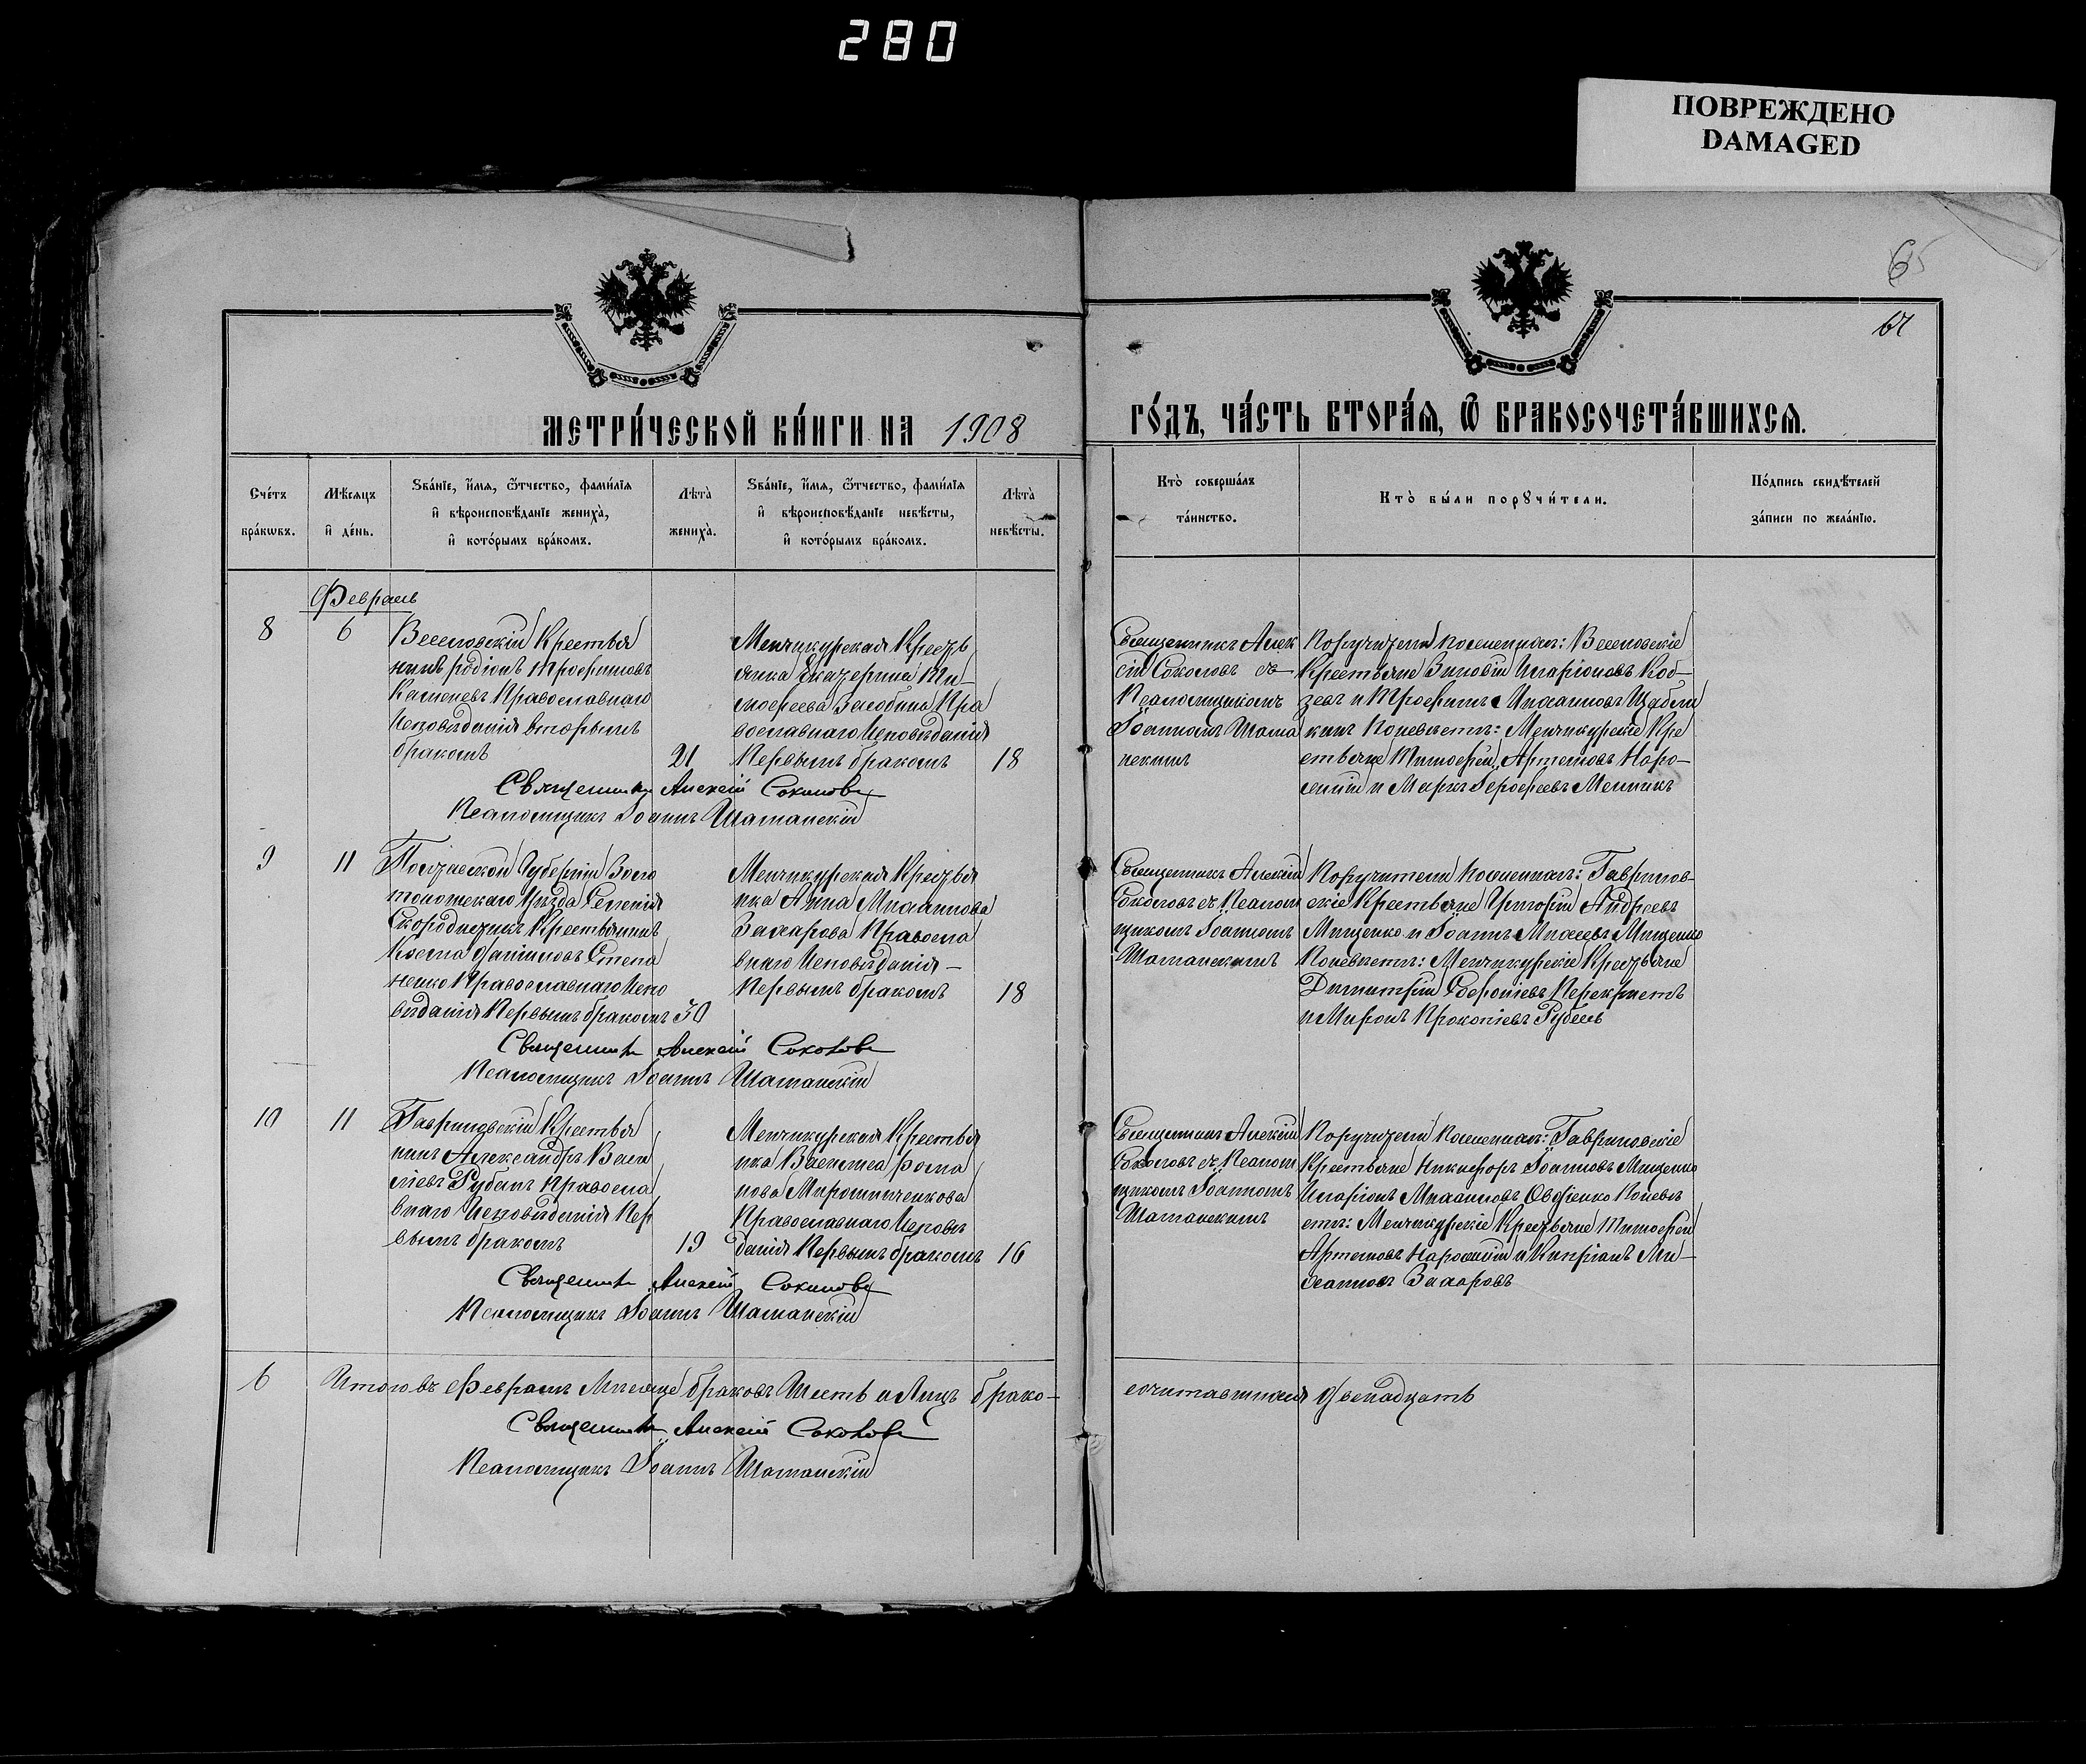 280
ПОВРЕЖДЕНО
DAMAGED
65
МЕТРИ́ЧЕСКОЙ КНИ́ГИ НА 1908
ГО́ДЪ, ЧА́СТЬ ВТОРА́Ѧ, Ѽ БРАКОСОЧЕТА́ВШИХСѦ.
Сче́тъ
бра́кѡвъ.
Мѣ́сѧцъ
и҆ де́нь.
Ѕва́нїе, и҆́мѧ, ѻ҆́тчество, фами́лїѧ
и҆ вѣроисповѣ́данїе жениха̀,
и҆ кото́рымъ бра́комъ.
Лѣта̀
жениха̀.
Ѕва́нїе, и҆́мѧ, ѻ҆́тчество, фами́лїѧ
и҆ вѣроисповѣ́данїе невѣ́сты,
и҆ кото́рымъ бра́комъ.
Лѣта̀
невѣ́сты.
Кто̀ соверша́лъ
та́инство.
Кто̀ бы́ли порꙋчи́тели.
По́дпись свидѣ́телей
за́писи по жела́нїю.
Февраль
8
6
Веселовскій Крестья
нинъ Родіонъ Трофимовъ
Православнаго
Исповѣданія вторымъ
бракомъ
21
Менчикурская Кресть
янка Екатерина Ти-
мофеева Пра
вославнаго Исповѣданія
Первымъ бракомъ
18
Священникъ Алек
сій Соколовъ съ
Псаломщикомъ
Іоанномъ Шата
нскимъ
Поручители по женихѣ: Веселовскіе
Крестьяне Зиновій Иларіоновъ Коб-
зевъ и Трофимъ
кинъ По невѣстѣ: Менчикурскіе Кре
стьяне Тимофей Артемовъ Наро-
и Ерофеевъ Мельникъ
Священникъ Алексій Соколовъ
Псаломщикъ Іоаннъ Шатанскій
9
11
Полтавской Губерніи Золо
тоношскаго Уѣзда Селенія
Крестьянинъ
Косма Даніиловъ Степа
ненко Православнаго Испо
вѣданія Первымъ бракомъ 30
Менчикурская Крестья
нка Анна Михаилова
Захарова Правосла
внаго Исповѣданія -
Первымъ бракомъ
18
Священникъ Алексій
Соколовъ съ Псалом
щикомъ Іоанномъ
Шатанскимъ
Поручители по женихѣ: Гавриловс-
скіе Крестьяне Григорій Андреевъ
Мищенко и Іоаннъ Мищенко
По невѣстѣ: Менчикурскіе Крестьяне
Димитрій Перекрестъ
и Миронъ Прокопіевъ
Священникъ Алексій Соколовъ
Псаломщикъ Іоаннъ Шатанскій
10
11
Гавриловскій Крестья
нинъ Александръ Васи
ліевъ Рубанъ Правосла
внаго Исповѣданія Пер
вымъ бракомъ
19
Менчикурская Крестья
нка Васисса Рома
нова Мирошниченкова
Православнаго Исповѣ
данія Первымъ бракомъ
16
Священникъ Алексій
Соколовъ съ Псалом
щикомъ Іоанномъ
Шатанскимъ
Поручители по женихѣ: Гавриловскіе
Крестьяне Никифоръ Іоанновъ Мищенко
Иларіонъ Михаиловъ Овдіенко По невѣ
стѣ: Менчикурскіе Крестьяне Тимофей
Артемовъ и Кипріанъ Ми-
хаиловъ Захаровъ
Священникъ Алексій Соколовъ
Псаломщикъ Іоаннъ Шатанскій
6
Итого въ Февралѣ Мѣсяцѣ браковъ Шесть и Лицъ брако-
сочитавшихся Двенадцать
Священникъ Алексій Соколовъ
Псаломщикъ Іоаннъ Шатанскій